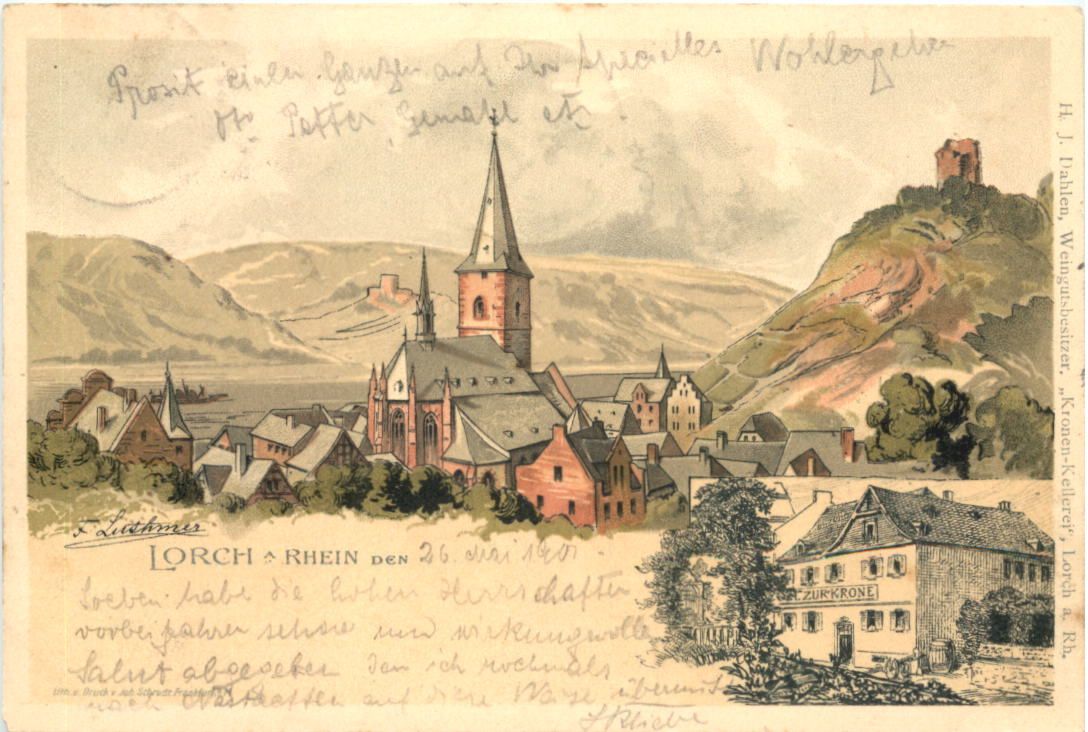 Prosit einen Ganzen auf Ihr specielles Wohlergehen
Otto Petter, Gemahl etc.
H. J. Dahlen, Weingutsbesitzer, „Kronen-Kellerei“, Lorch a. Rh.
F. Luthmer
LORCH A RHEIN DEN 26. Mai 1901.
ZUR KRONE
Soeben habe die hohen Herrschaften
vorbeifahren sehen und wirkungsvollen
Salut abgegeben den ich nochmals
nach auf diese Weise übermittle
Lith. u. Druck v. Joh. Schrodt, Frankfurt